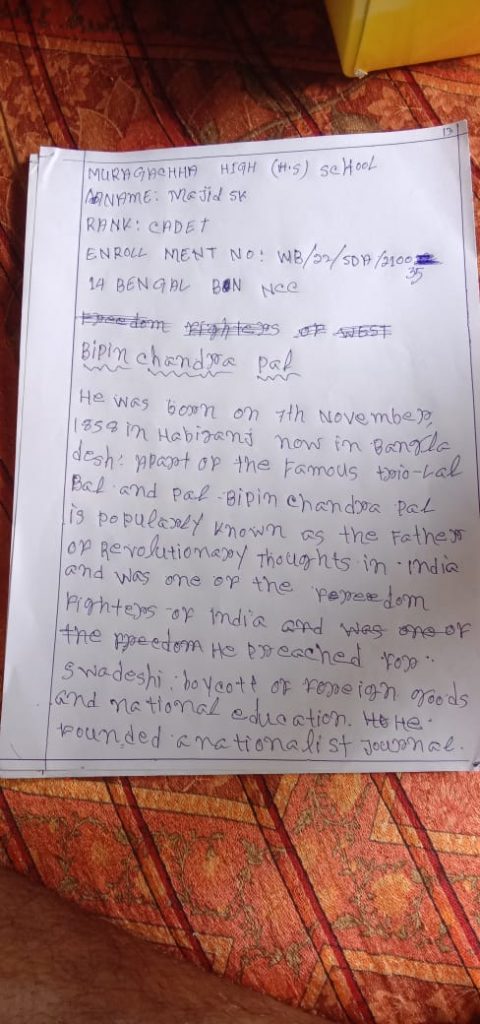 13
MURAGACHHA HIGH (H.S) SCHOOL
NAME: Majid SK
RANK: CADET
ENROLL MENT NO: WB/22/SDA/2100
35
14 BENGAL BN NCC
Freedom Fighters OF WEST
Bipin chandra Pal
He was born on 7th November,
1858 in Habiganj now in Bangla
desh: Apart of the Famous trio-Lal
Bal and Pal. Bipin chandra Pal
is popularly known as the Father
of Revolutionary Thoughts in India
and was one of the Fereedom
Fighters of India and was one of
the freedom He preached for
swadeshi, boycott of foreign goods
and national education. He He
founded a nationalist Journal.